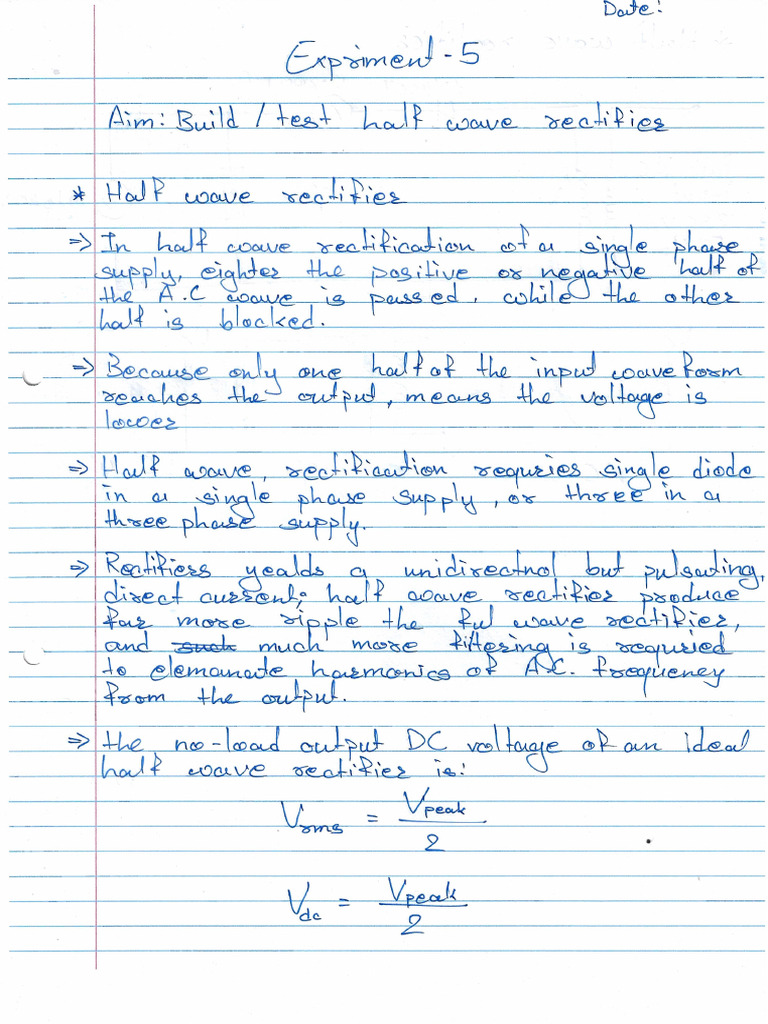 Date:
Expriment - 5
Aim: Build / test half wave rectifier
* Half wave rectifier
=> In half wave rectification of a single phase
supply, eighter the positive or negative half of
the A.C wave is passed, while the other
half is blocked.
=> Because only one half of the input wave form
reaches the output, means the voltage is
lower
=> Half wave, rectification requries single diode
in a single phase supply, or three in a
three phase supply.
=> Rectifiers yealds a unidirectnol but pulsading,
direct current; half wave rectifier produce
far more ripple the ful wave rectifier,
and such much more filtering is requried
to elemanate harmonics of A.C. frequency
from the output.
=> the no-load output DC voltage of an Ideal
half wave rectifier is:
Vrms = Vpeak / 2
Vdc = Vpeak / 2